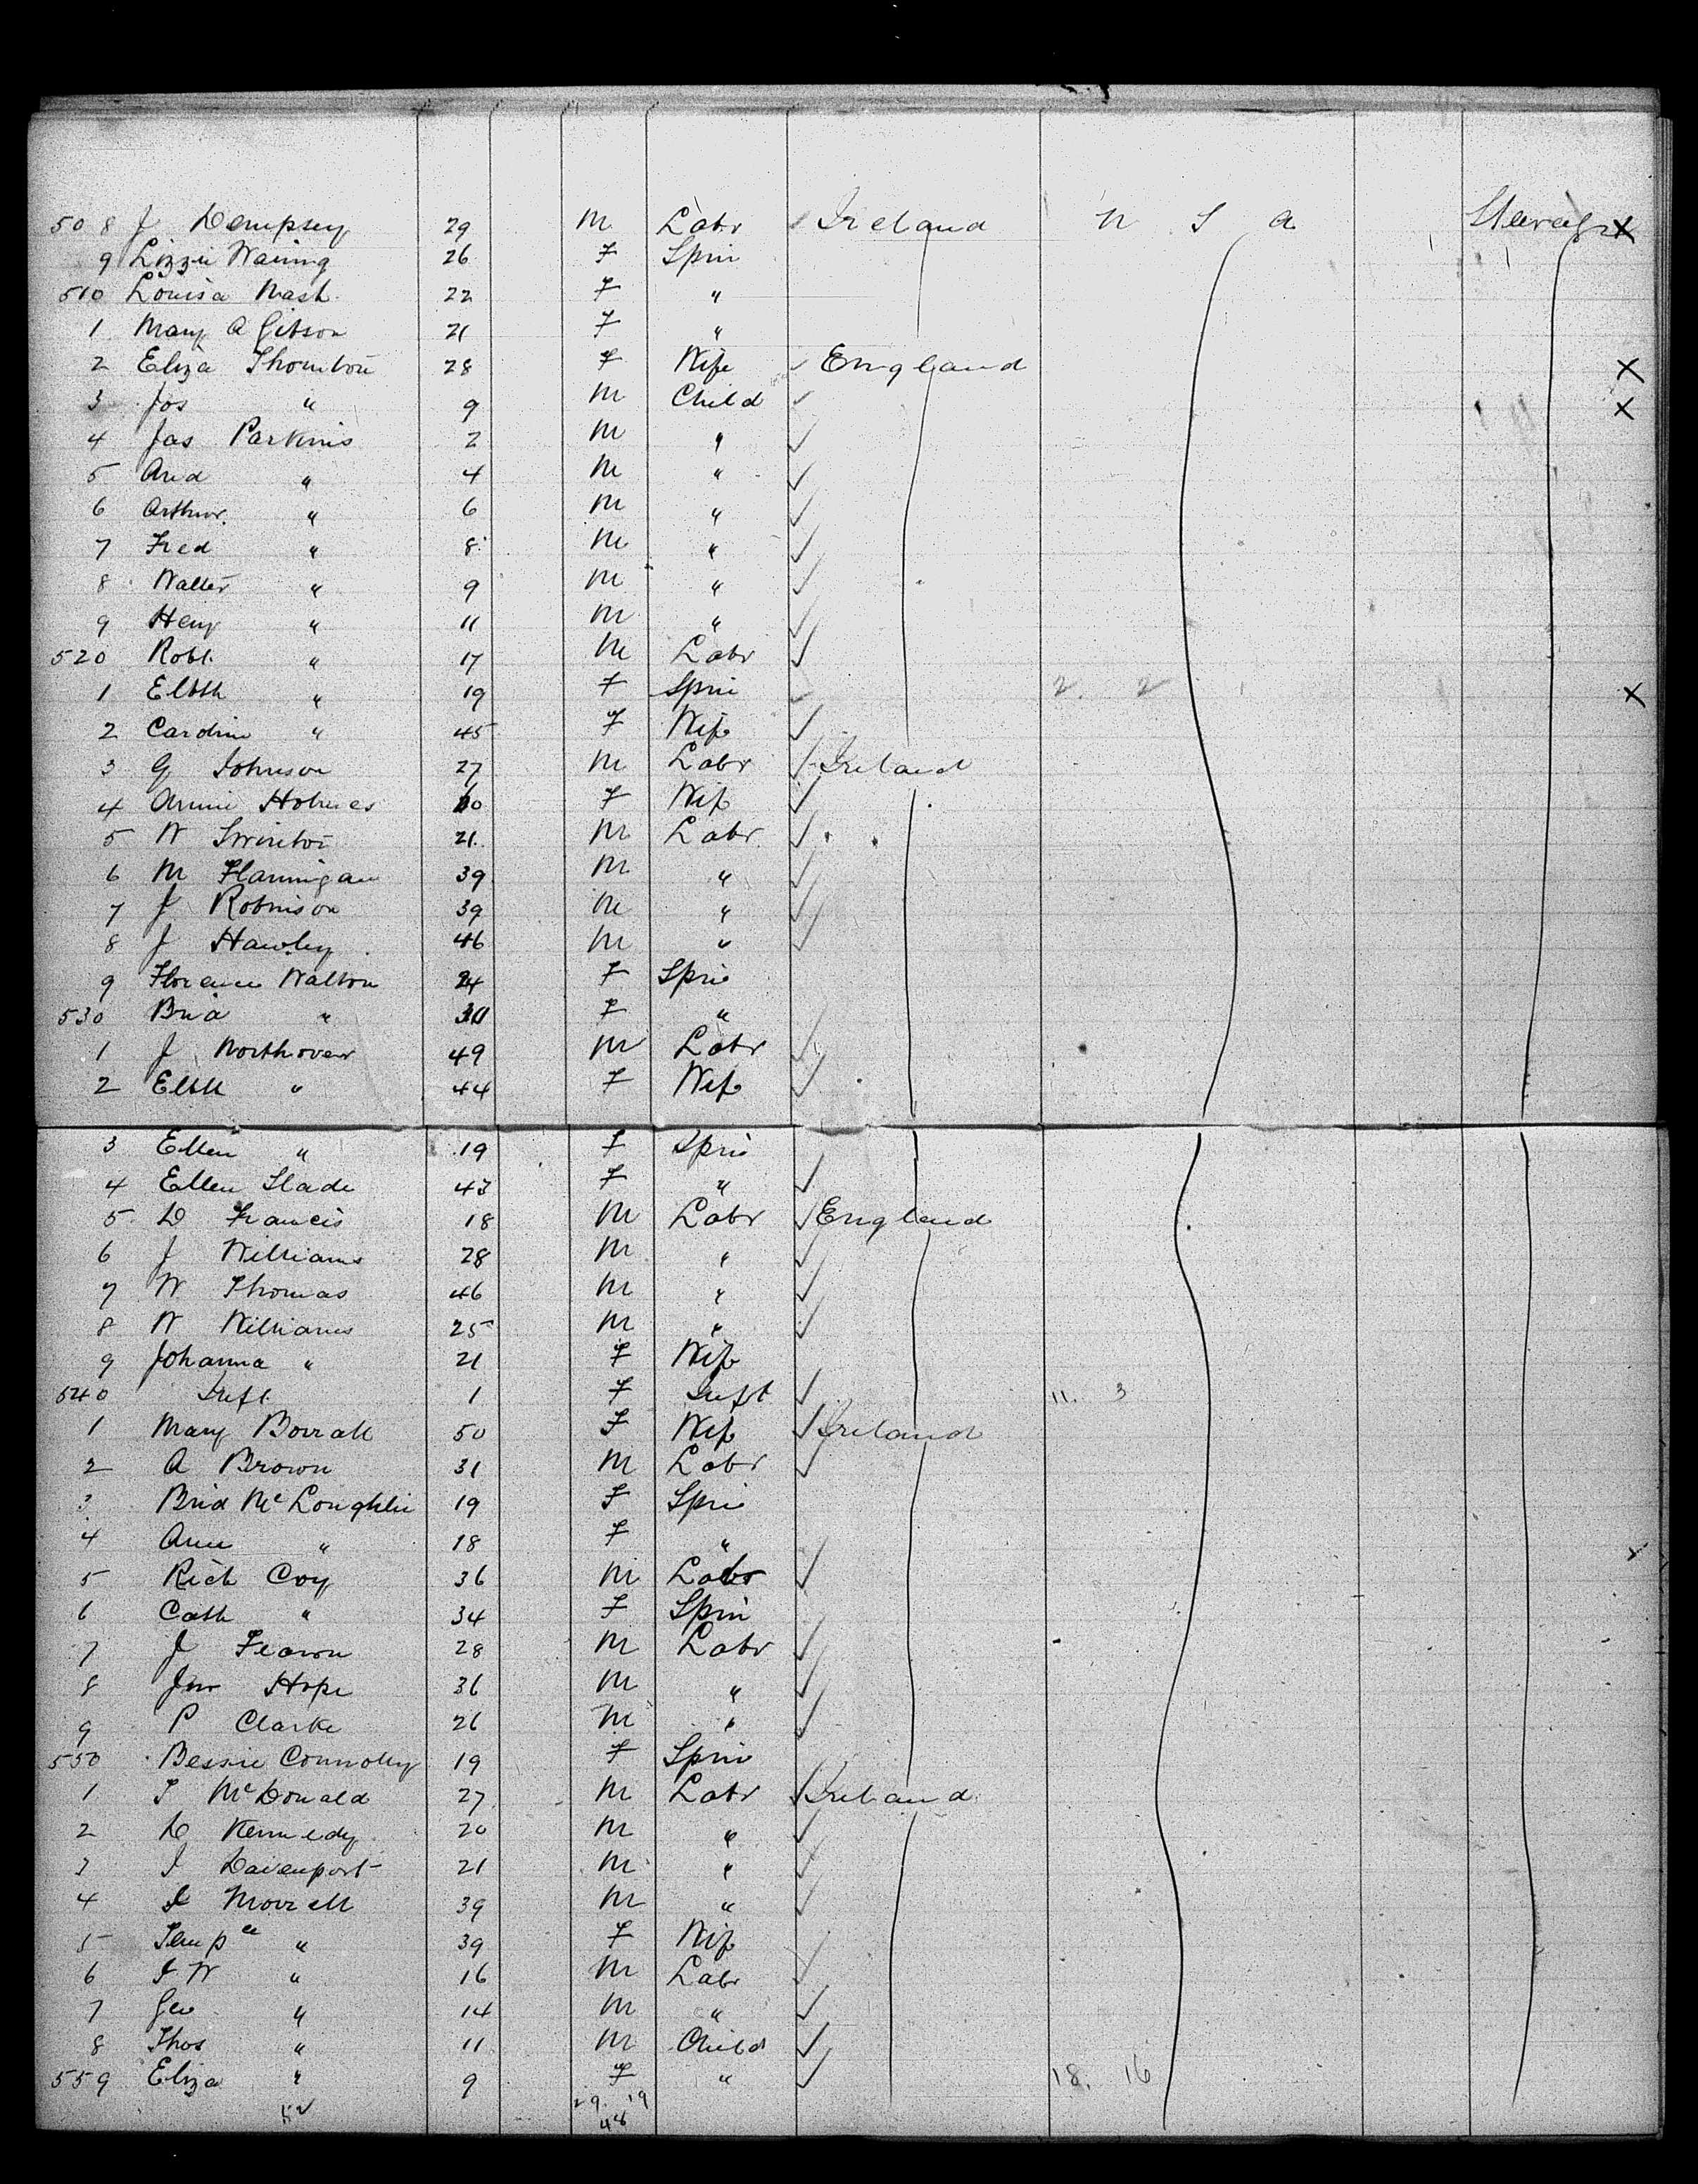 508 J Dempsey 29 M Labr Ireland U S A Steerage X
9 Lizzie Waring 26 F Spin
510 Louisa Nash 22 F "
1 Mary A Gibson 21 F "
2 Eliza Thornton 28 F Wife England X
3 Jos " 9 M Child X
4 Jas Parkins 2 M "
5 And " 4 M "
6 Arthur " 6 M "
7 Fred " 8 M "
8 Walter " 9 M "
9 Heny " 11 M "
520 Robt " 17 M Labr
1 Elbth " 19 F Spin 2. 2 X
2 Caroline " 45 F Wife
3 G Johnson 27 M Labr Ireland
4 Annie Holmes F Wife
5 W Swinton 21 M Labr
6 M Flannigan 39 M "
7 J Robinson 39 M "
8 J Hawley 46 M "
9 Florence Walton 24 F Spin
530 Brid " F "
1 J Northover 49 M Labr
2 Elbth " 44 F Wife
3 Ellen " 19 F Spin
4 Ellen Slade 43 F "
5 D Francis 18 M Labr England
6 J Williams 28 M "
7 W Thomas 46 M "
8 W Williams 25 M "
9 Johanna " 21 F Wife
540 Inft 1 F Inft 11. 3
1 Mary 50 F Wife Ireland
2 A Brown 31 M Labr
3 Brid McLoughlin 19 F Spin
4 Ann " 18 F "
5 Rich Coy 36 M Labr
6 Cath " 34 F Spin
7 J Fearon 28 M Labr
8 Jno Hope 36 M "
9 P Clarke 26 M "
550 Bessie Connolly 19 F Spin
1 T McDonald 27 M Labr Ireland
2 D Kennedy 20 M "
3 J Davenport 21 M "
4 Morrell 39 M "
5 Tempce " 39 F Wife
6 W " 16 M Labr
7 Geo " 14 M "
8 Thos " 11 M Child
559 Eliza " 9 F " 18. 16
52 29. 19
48